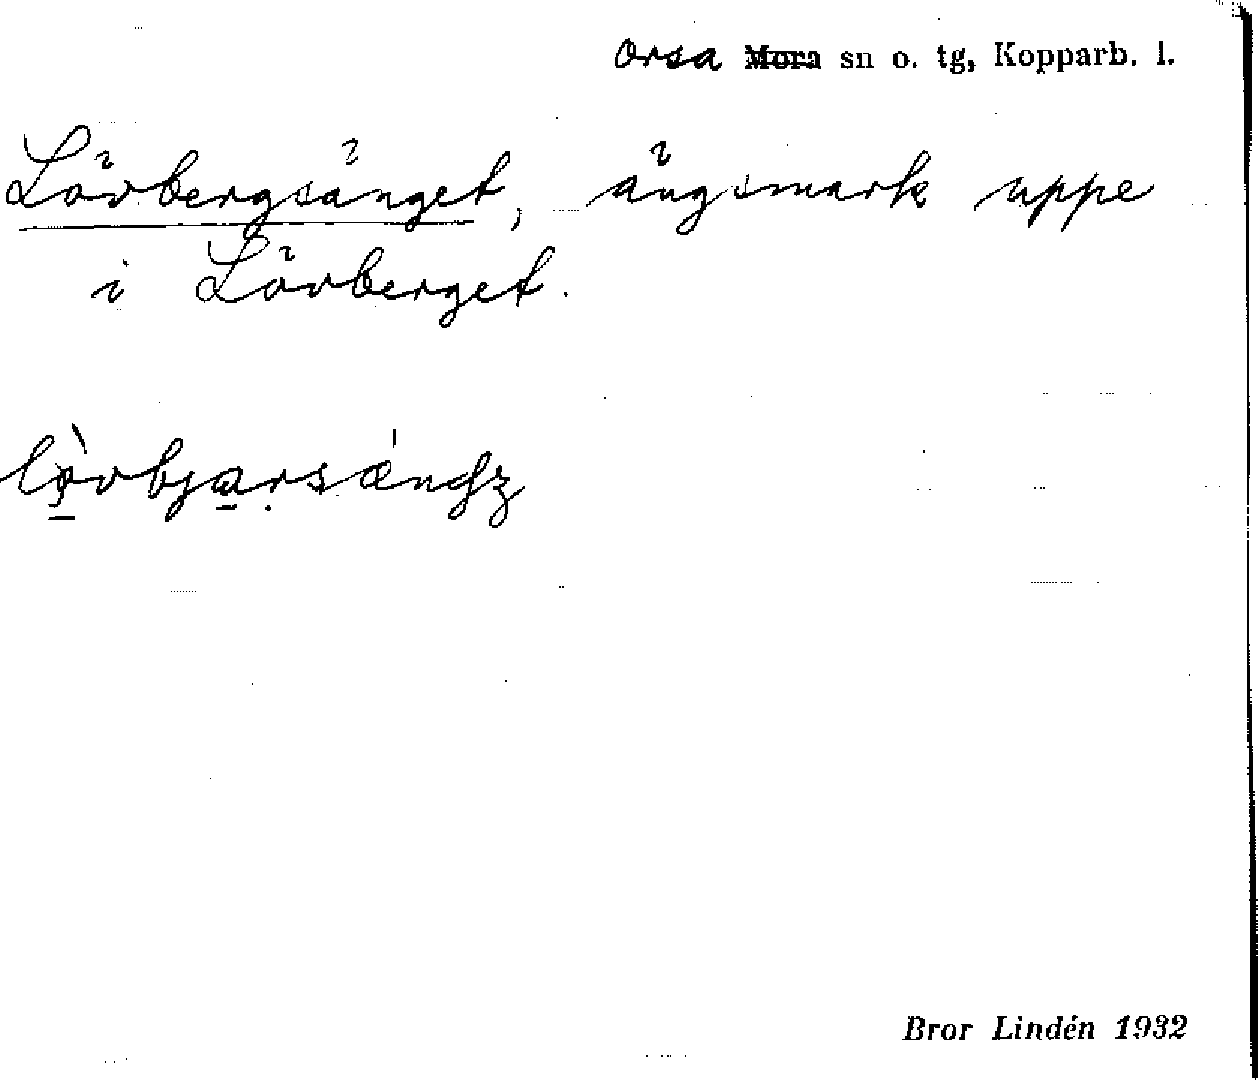 Orsa Mora sn o. tg, Kopparb. l.
Lövbergsänget, ängsmark uppe
i Lövberget.
Bror Lindén 1932